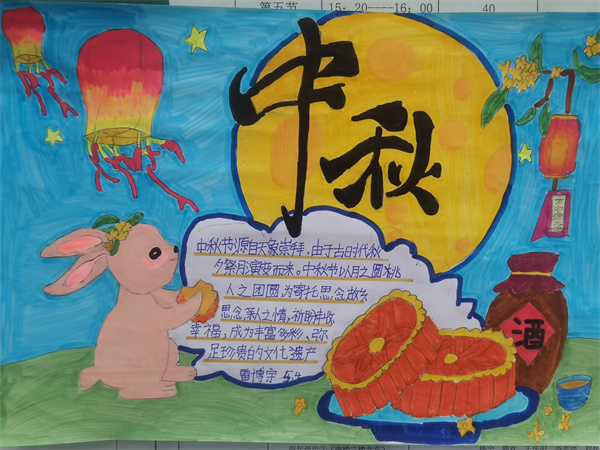 第五节 15：20----16：00 40
中秋
中秋节源自天象崇拜，由于古时代秋
夕祭月演变而来。中秋节以月之圆桃
人之团圆，为寄托思念故乡
思念亲人之情，祈盼丰收
幸福，成为丰富多彩、弥
足珍贵的文化遗产
雷博宇 5.4
酒